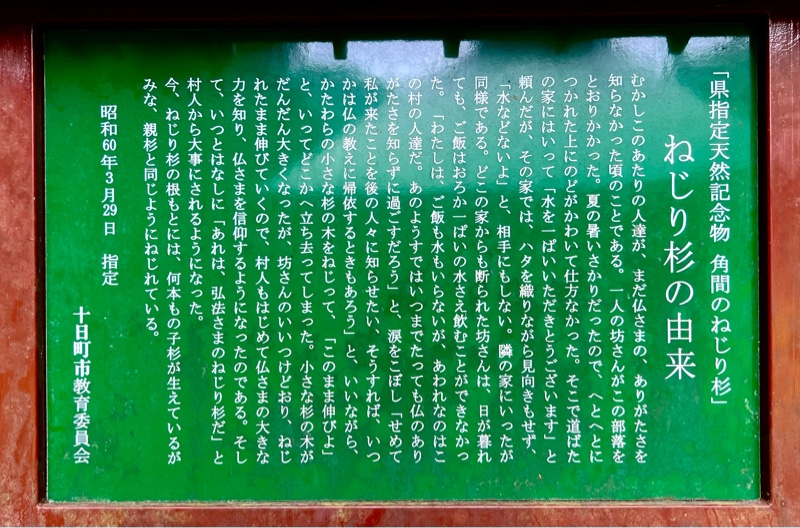 「県指定天然記念物 角間のねじり杉」
ねじり杉の由来
むかしこのあたりの人達が、まだ仏さまの、ありがたさを
知らなかった頃のことである。一人の坊さんがこの部落を
とおりかかった。夏の暑いさかりだったので、へとへとに
つかれた上にのどがかわいて仕方なかった。そこで道ばた
の家にはいって「水を一ぱいいただきとうございます」と
頼んだが、その家では、ハタを織りながら見向きもせず、
「水などないよ」と、相手にもしない。隣の家にいったが
同様である。どこの家からも断られた坊さんは、日が暮れ
ても、ご飯はおろか一ぱいの水さえ飲むことができなかっ
た。「わたしは、ご飯も水もいらないが、あわれなのはこ
の村の人達だ。あのようすではいつまでたっても仏のあり
がたさを知らずに過ごすだろう」と、涙をこぼし「せめて
私が来たことを後の人々に知らせたい、そうすれば、いつ
かは仏の教えに帰依するときもあろう」と、いいながら、
かたわらの小さな杉の木をねじって、「このまま伸びよ」
と、いってどこかへ立ち去ってしまった。小さな杉の木が
だんだん大きくなったが、坊さんのいいつけどおり、ねじ
れたまま伸びていくので、村人もはじめて仏さまの大きな
力を知り、仏さまを信仰するようになったのである。そし
て、いつとはなしに「あれは、弘法さまのねじり杉だ」と
村人から大事にされるようになった。
今、ねじり杉の根もとには、何本もの子杉が生えているが
みな、親杉と同じようにねじれている。
昭和60年3月29日 指定
十日町市教育委員会